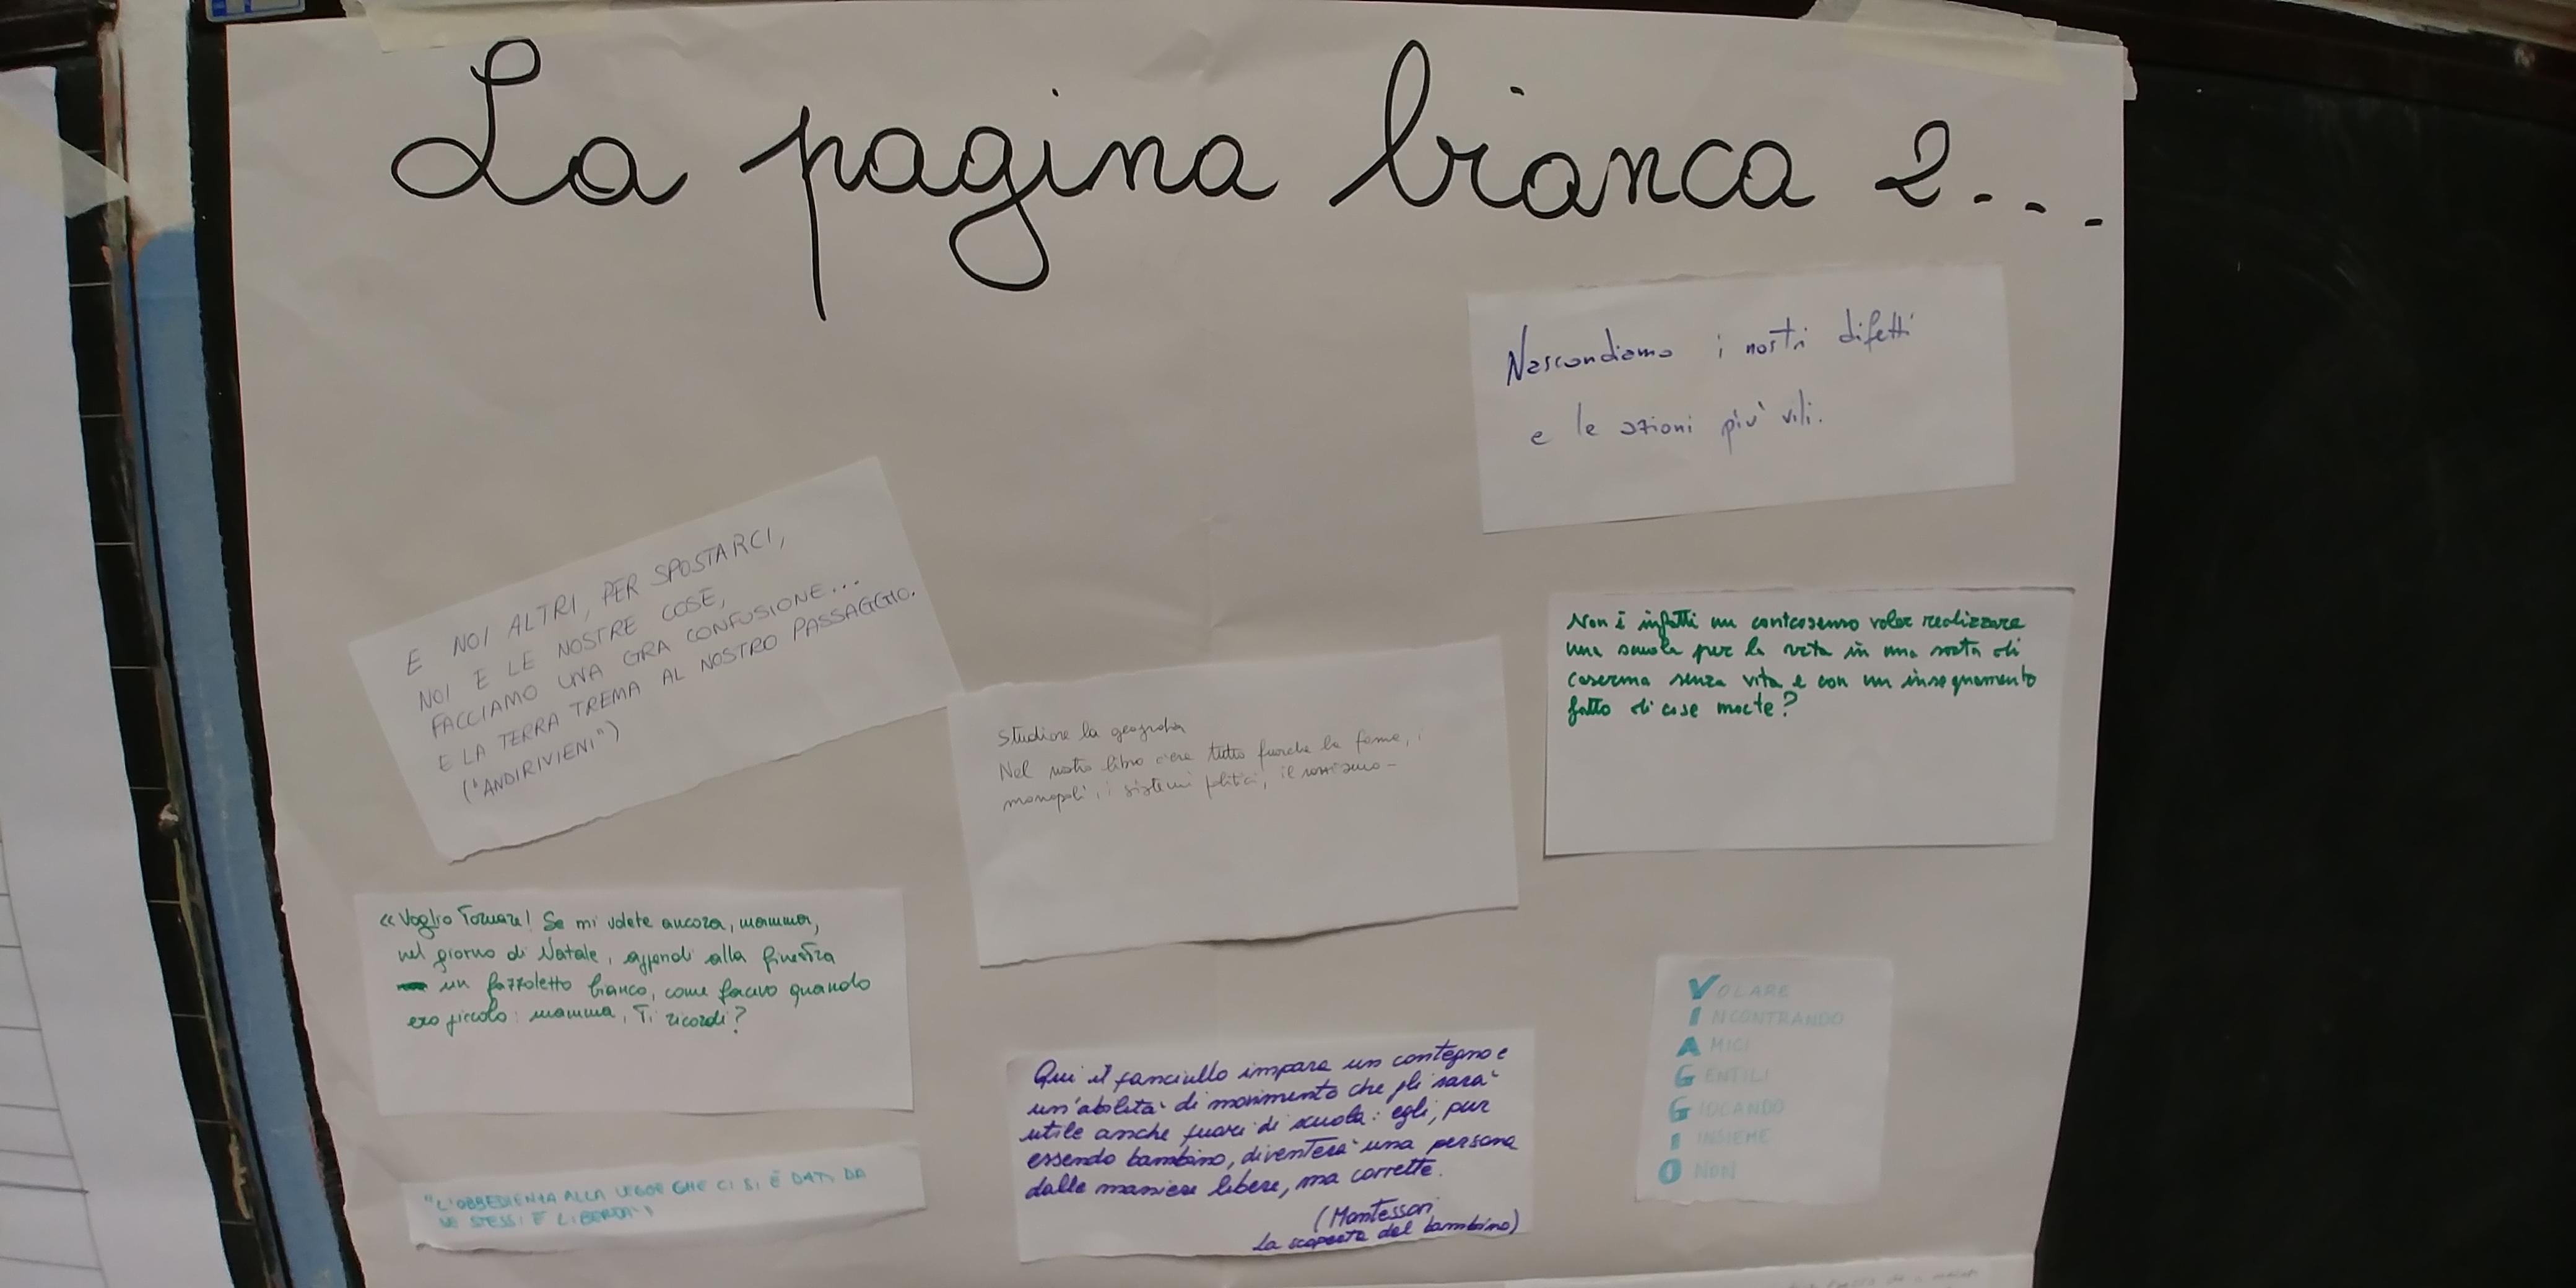 La pagina bianca 2...
Nascondiamo i nostri difetti
e le azioni più vili.
E NOI ALTRI, PER SPOSTARCI,
NOI E LE NOSTRE COSE,
FACCIAMO UNA GRA CONFUSIONE...
E LA TERRA TREMA AL NOSTRO PASSAGGIO.
("ANDIRIVIENI")
Studiare la geografia
Nel nostro libro c'era tutto fuorché la fame, i
monopoli, i sistemi politici, il razzismo-
Non è infatti un controsenso voler realizzare
una scuola per la vita in una sorta di
caserma senza vita e con un insegnamento
fatto di cose morte?
«Voglio tornare! Se mi volete ancora, mamma,
nel giorno di Natale, appendi alla finestra
un fazzoletto bianco, come facevo quando
ero piccolo: mamma, Ti ricordi?
Qui il fanciullo impara un contegno e
un'abilità di movimento che gli sarà
utile anche fuori di scuola: egli, pur
essendo bambino, diventerà una persona
dalle maniere libere, ma corrette.
(Montessori
La scoperta del bambino)
VOLARE
INCONTRANDO
AMICI
GENTILI
GIOCANDO
INSIEME
O NON
"L'OBBEDIENZA ALLA LEGGE CHE CI SI È DATI DA
SE STESSI È LIBERTÀ"